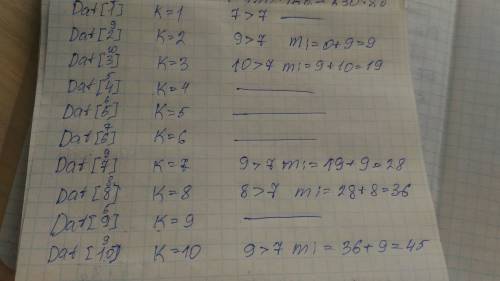 Dat[1] K=1 7>7 —
9
Dat[2] K=2 9>7 m:=0+9=9
10
Dat[3] K=3 10>7 m:=9+10=19
5
Dat[4] K=4 —
6
Dat[5] K=5 —
7
Dat[6] K=6 —
9
Dat[7] K=7 9>7 m:=19+9=28
Dat[8] K=8 8>7 m:=28+8=36
6
Dat[9] K=9 —
9
Dat[10] K=10 9>7 m:=36+9=45